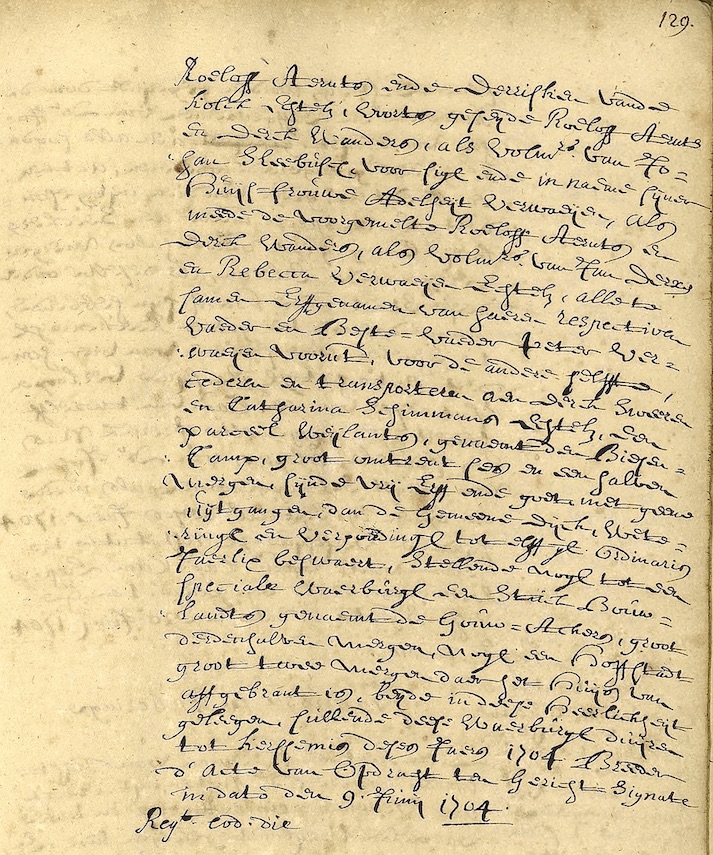 129.
Roeloff Aernts ende Derrisken vande
Kolck Echtel:, voorts gesejde Roeloff Aernts
en Derck Wanders, als volm:rs van Jo=
han Sleebusch, voor sigh ende in naeme sijner
Huijs=frouwe Adelheijt Verwaeijen, als
meede de voorgemelte Roeloff Aernts en
Derck Wanders, als volm:rs van Jan Dercx
en Rebecca Verwaeijen Echtel:, alle te
samen Erffgenamen van haeren respectiven
Vaeder en Beste=vaeder Peter Ver=
waeijen voorn:t, voor de andere helffte,
cederen en transporteren aen Derck Sweeren
en Catharina Schimmans Echtel:, een
parceel Weijlants, genaemt den Biesen=
Camp, groot omtrent ses en een halven
Mergen, sijnde vrij Erff ende goet, met geene
uijtgangen, dan de Gemeene Dijck, Wete=
ringh en Verpondingh tot elff gl. Ordinaris
Jaerlix beswaert, stellende nogh tot een
speciale Waerburgh een Stuck Bouw=
Landts genaemt de Gouw=Ackers, groot
derdenhalven Mergen, Nogh een Hoffstadt
groot twee Mergen daer het Huijs van
affgebrant is, bejde in deese Heerlicheijt
geleegen, sullende deese Waerburgh duijren
tot Kerssemis deses Jaers 1704 Breeder
d'Acte van Opdracht ten Gerichte Signate
in dato den 9. Junij 1704.
Reg:t eod. die